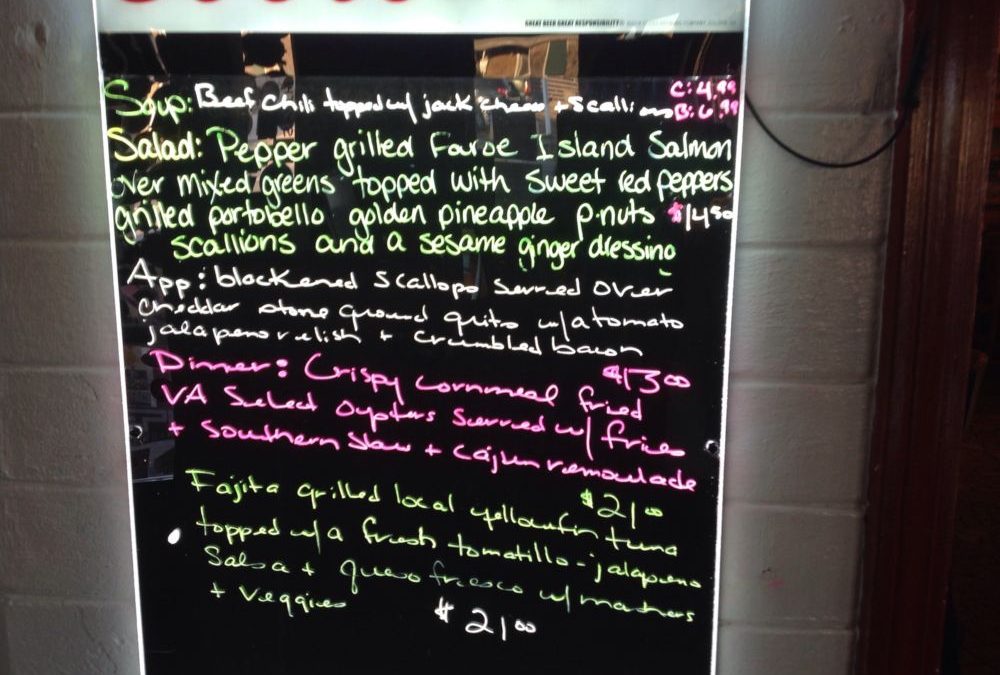 GREAT BEER GREAT RESPONSIBILITY®
Soup: Beef chili topped w/ jack cheese + scallions C: 4.99
B: 6.99
Salad: Pepper grilled Faroe Island Salmon
over mixed greens topped with sweet red peppers
grilled portobello golden pineapple p-nuts $14.50
scallions and a sesame ginger dressing
App: blackened scallops served over
cheddar stone ground grits w/ a tomato
jalapeno relish + crumbled bacon
$13.00
Dinner: Crispy cornmeal fried
VA Select oysters served w/ fries
+ Southern slaw + cajun remoulade
$21.00
Fajita grilled local yellowfin tuna
topped w/ a fresh tomatillo-jalapeno
Salsa + queso fresco w/ mashers
+ veggies
$21.00